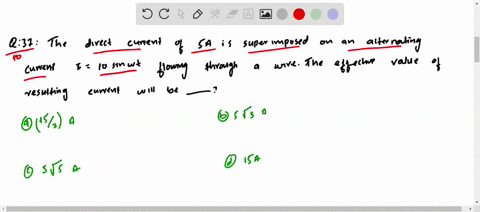 Q:37: The direct current of 5A is superimposed on an alternating
10
current I = 10 sin wt flowing through a wire. The effective value of
resulting current will be ___ ?
(a) (15/2) A
(b) 5√3 A
(c) 5√5 A
(d) 15A